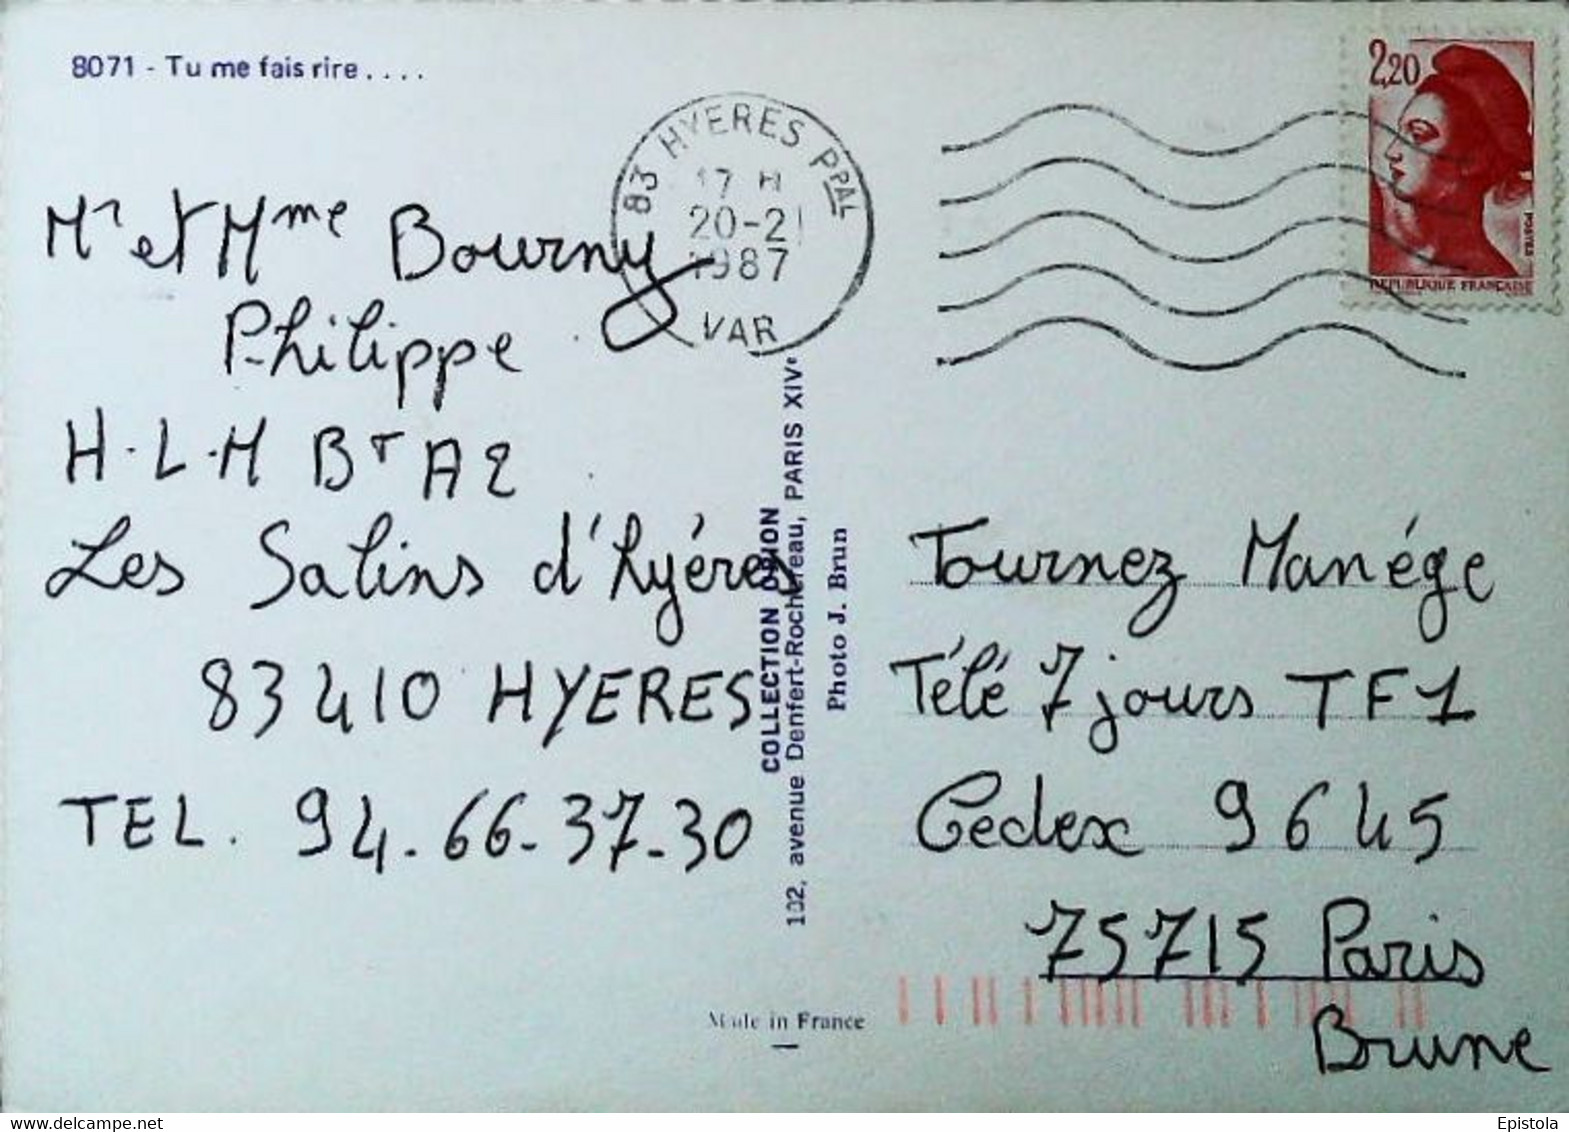 8071 - Tu me fais rire....
83 HYERES PPAL
17 H
20-2
1987
VAR
2,20
POSTES
REPUBLIQUE FRANÇAISE
Mr et Mme Bourny
Philippe
H.L.M Bt A2
Les Salins d'hyéres
83410 HYERES
TEL. 94.66-37-30
COLLECTION ORION
102, avenue Denfert-Rochereau, PARIS XIVe
Photo J. Brun
Made in France
Tournez Manége
Télé 7 jours TF1
Cedex 9645
75715 Paris
Brune
Epistola